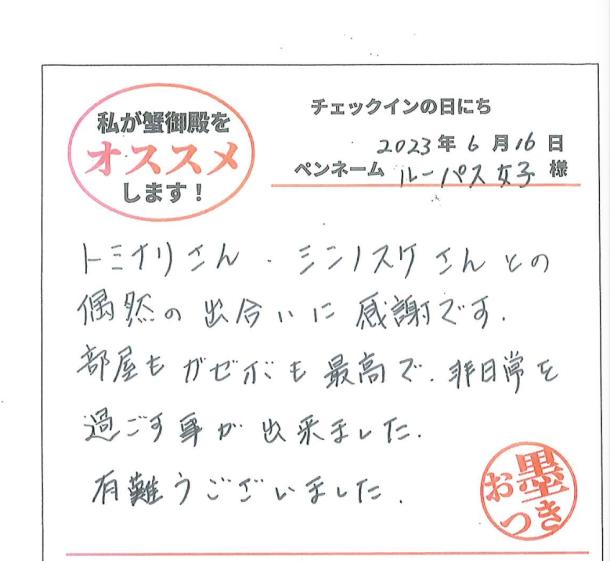 私が蟹御殿を
オススメ
します!
チェックインの日にち
2023年6月16日
ペンネーム ルーパス女子 様
トミナリさん・ミンノスケさんとの
偶然の出合いに感謝です.
部屋もガゼボも最高で.非日常を
過ごす事が出来ました.
有難うございました.
お墨つき